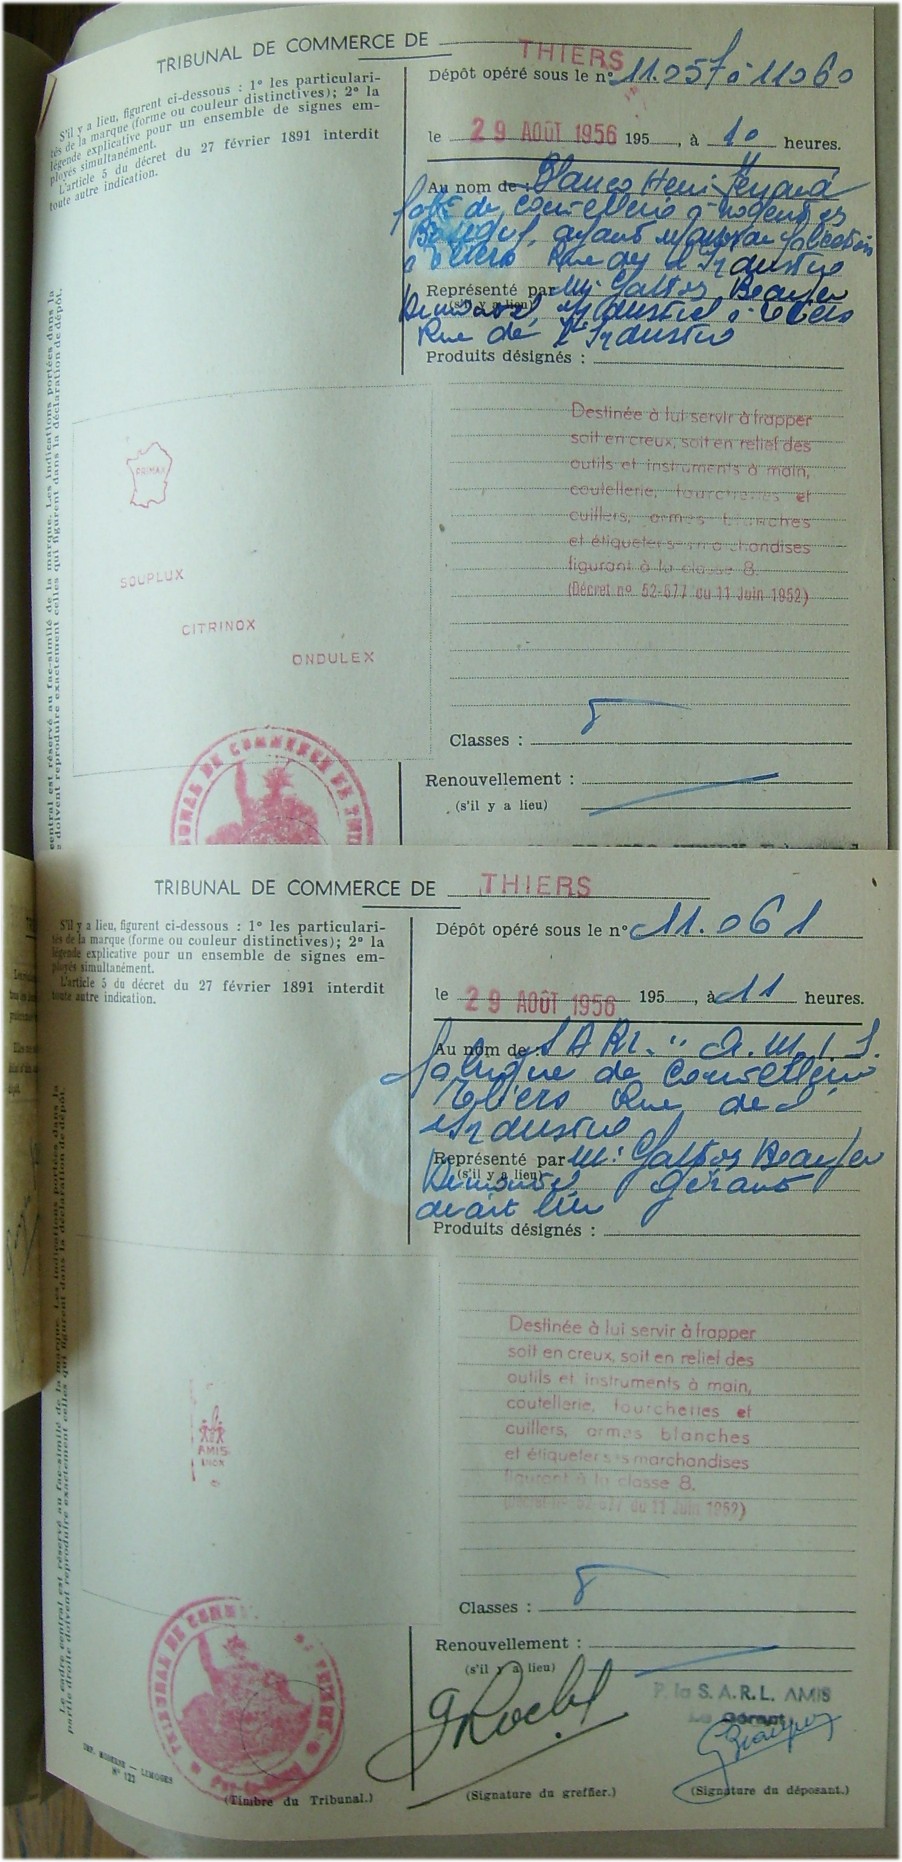 TRIBUNAL DE COMMERCE DE THIERS
S'il y a lieu, figurent ci-dessous : 1° les particulari-
tés de la marque (forme ou couleur distinctives); 2° la
légende explicative pour un ensemble de signes em-
ployés simultanément.
L'article 5 du décret du 27 février 1891 interdit
toute autre indication.
Dépôt opéré sous le n° 11.057 à 11060
le 29 AOÛT 1956 195 , à 10 heures.
Au nom de : Blanco Henri
de coutellerie à
ayant
à Thiers Rue de l'Industrie
Représenté par Mr
(s'il y a lieu) Industriel à Thiers
Rue de l'Industrie
Produits désignés :
Destinée à lui servir à frapper
soit en creux, soit en relief des
outils et instruments à main,
coutellerie, fourchettes et
cuillers, armes blanches
et étiqueter marchandises
figurant à la classe 8.
(Décret n° 52-677 du 11 Juin 1952)
PRIMAX
SOUPLUX
CITRINOX
ONDULEX
Classes : 8
Renouvellement :
(s'il y a lieu)
central est réservé au fac-similé de la marque. Les indications portées dans la
doivent reproduire exactement celles qui figurent dans la déclaration de dépôt.
TRIBUNAL DE COMMERCE DE
TRIBUNAL DE COMMERCE DE THIERS
S'il y a lieu, figurent ci-dessous : 1° les particulari-
tés de la marque (forme ou couleur distinctives); 2° la
légende explicative pour un ensemble de signes em-
ployés simultanément.
L'article 5 du décret du 27 février 1891 interdit
toute autre indication.
Dépôt opéré sous le n° 11.061
le 29 AOÛT 1956 195 , à 11 heures.
Au nom de : SARL. " A.M.I.S.
fabrique de coutellerie
Thiers Rue de l'
Industrie
Représenté par Mr
(s'il y a lieu) Gérant
Produits désignés :
Destinée à lui servir à frapper
soit en creux, soit en relief des
outils et instruments à main,
coutellerie, fourchettes et
cuillers, armes blanches
et étiqueter marchandises
figurant à la classe 8.
(Décret n° 52-677 du 11 Juin 1952)
AMIS
INOX
Classes : 8
Renouvellement :
(s'il y a lieu)
P. la S.A.R.L. AMIS
Le Gérant
Le cadre central est réservé au fac-similé de la marque. Les indications portées dans la
partie droite doivent reproduire exactement celles qui figurent dans la déclaration de dépôt.
TRIBUNAL DE COMM DE THIERS
IMP. MODERNE — LIMOGES
N° 123
(Timbre du Tribunal.)
(Signature du greffier.)
(Signature du déposant.)